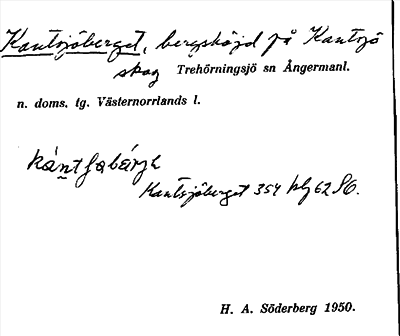 Kantsjöberget, bergshöjd på Kantsjö
skog Trehörningsjö sn Ångermanl.
n. doms. tg. Västernorrlands l.
Kantsjöberget 354 blj 62 SO.
H. A. Söderberg 1950.